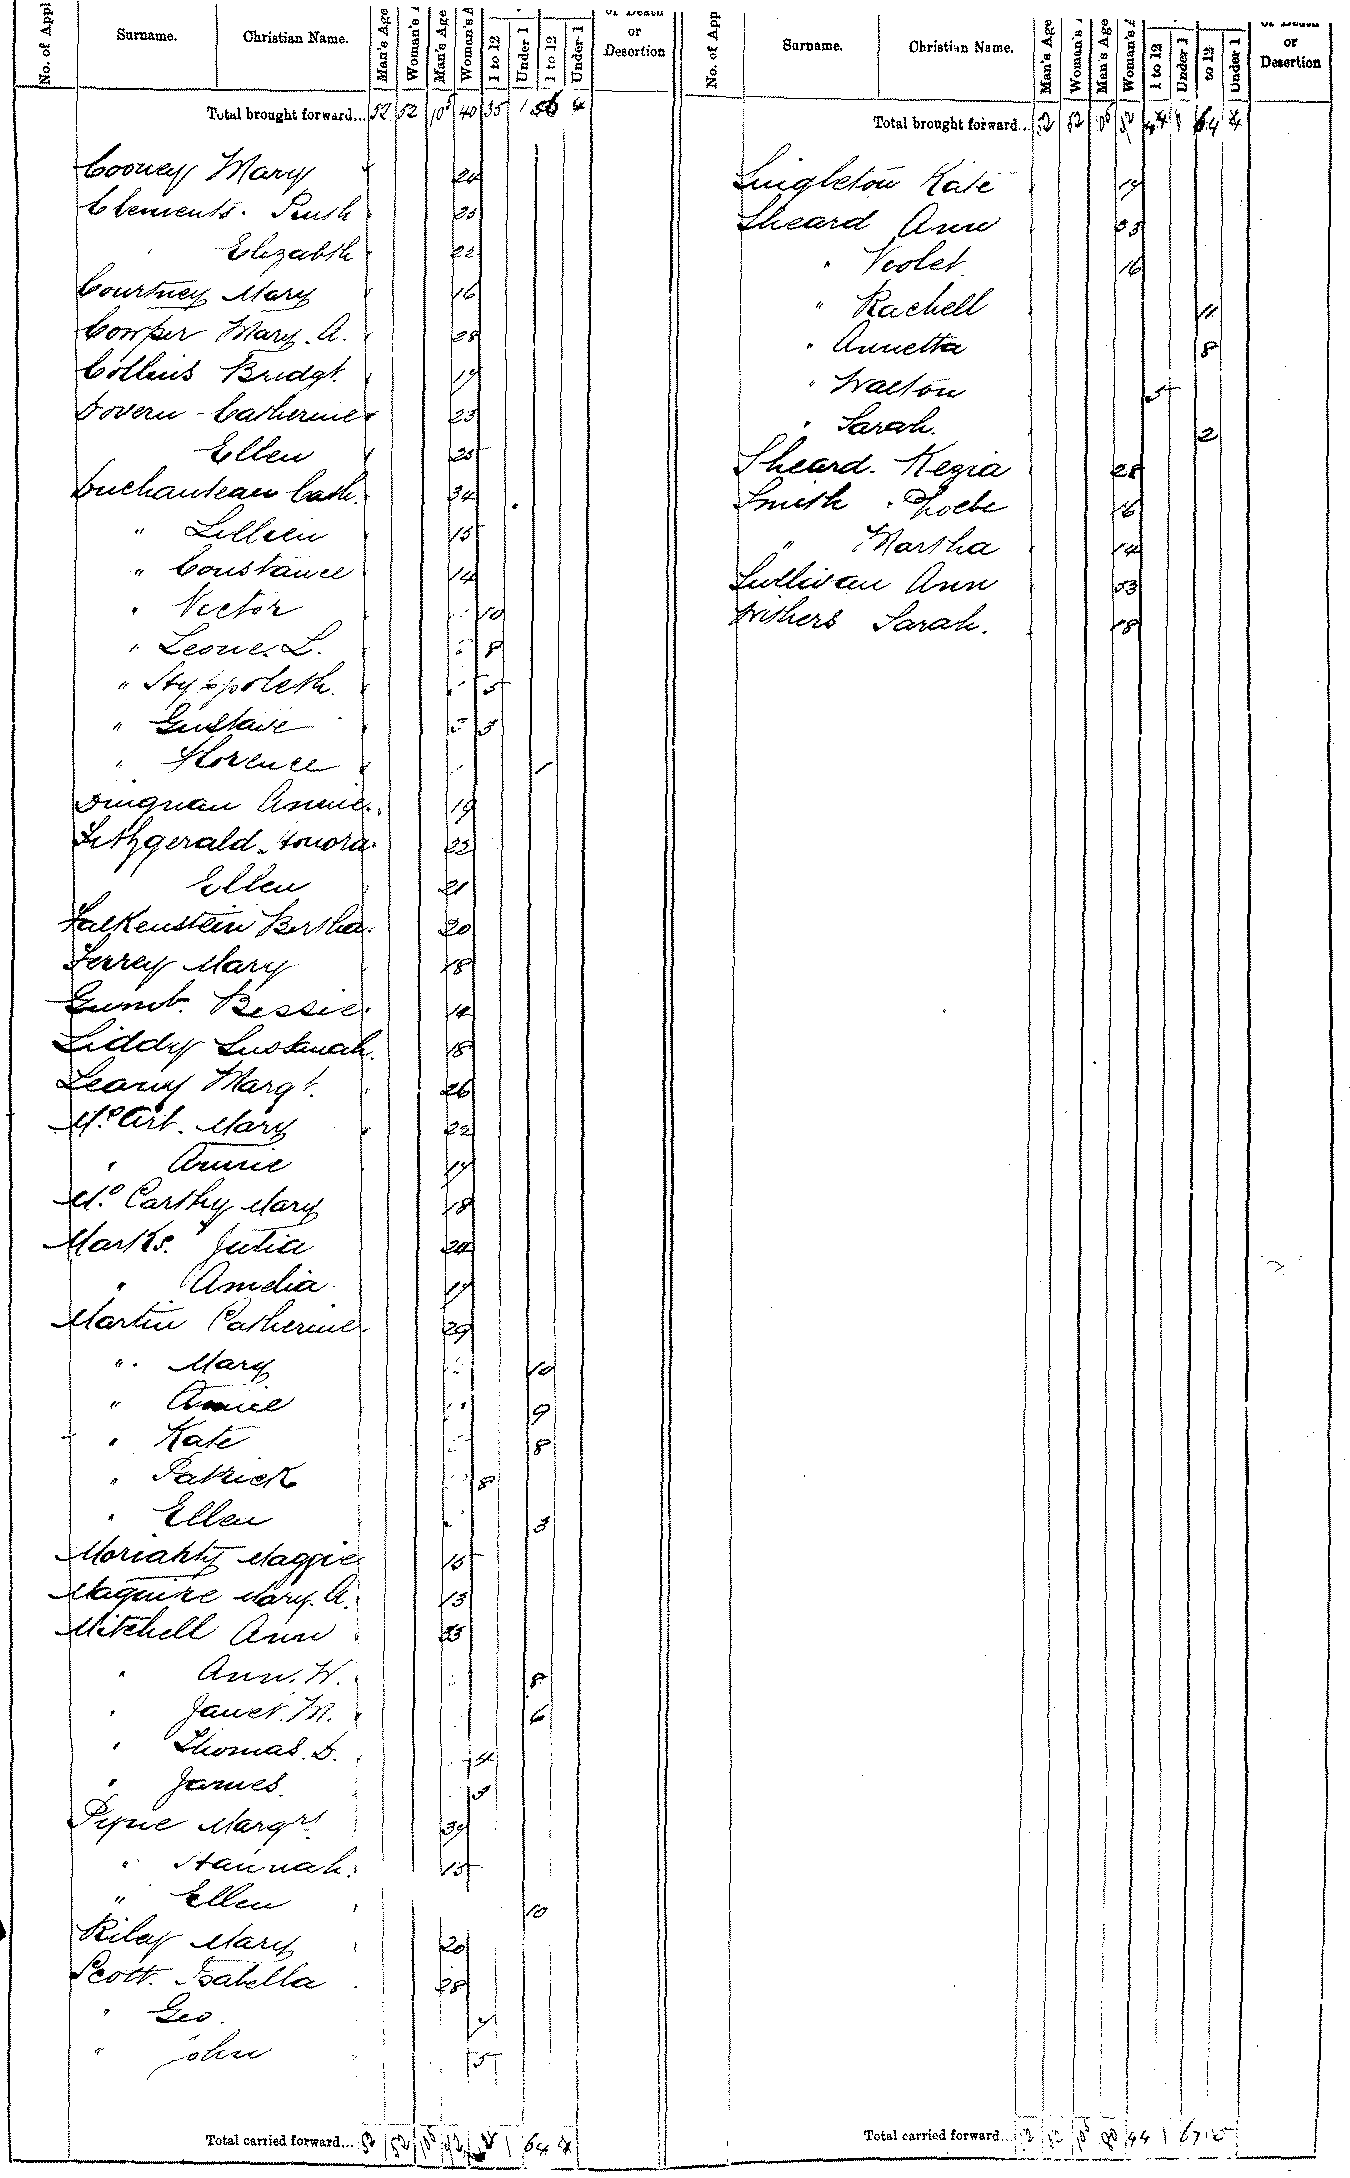 No. of Appl Surname. Christian Name. Man's Age Woman's Man's Age Woman's 1 to 12 Under 1 1 to 12 Under 1 of Death or Desertion
Total brought forward... 52 52 105 40 35 1 56 4
Cooney Mary 24
Clements. Ruth 25
Elizabth 22
Courtney Mary 16
Cowper Mary. A. 28
Collins Bridgt. 17
Dovern - Catherine 23
Ellen 25
Duchauteau Cath. 34
" Lilleen 15
" Constance 14
" Victor 10
" Leone. L. 8
" Hyppoleth. 5
" Gustave 3
" Florence 1
Duignan Annie. 19
Fitzgerald. Honora 23
Ellen 21
Falkenstein Bertha. 20
Ferrey Mary 18
Gumb. Bessie. 14
Liddy Susannah. 18
Leany Margt. 26
McArt. Mary 22
" Annie 17
Mc Carthy Mary 18
Marks. Julia 24
" Amelia 17
Martin Catherine. 29
" Mary 10
" Annie 9
" Kate 8
" Patrick 8
" Ellen 3
Moriarty Maggie 15
Maguire Mary. A. 13
Mitchell Ann 33
" Ann. W. 8
" Janet. M. 6
" Thomas. D. 4
" James. 3
Pyne Margrt. 37
" Hannah. 15
" Ellen 10
Riley Mary 20
Scott. Isabella 28
" Geo. 7
" John 5
Total carried forward... 52 52 105 1 64 4
No. of App Surname. Christian Name. Man's Age Woman's Man's Age Woman's 1 to 12 Under 1 to 12 Under 1 of Death or Desertion
Total brought forward... 52 52 105 44 1 64 4
Singleton Kate 17
Sheard Ann
" Violet 16
" Rachell 11
" Annetta 8
" Walton 5
" Sarah. 2
Sheard. Kezia 28
Smith Phoebe 16
" Martha 14
Sullivan Ann 53
Withers Sarah. 18
Total carried forward... 44 1 67